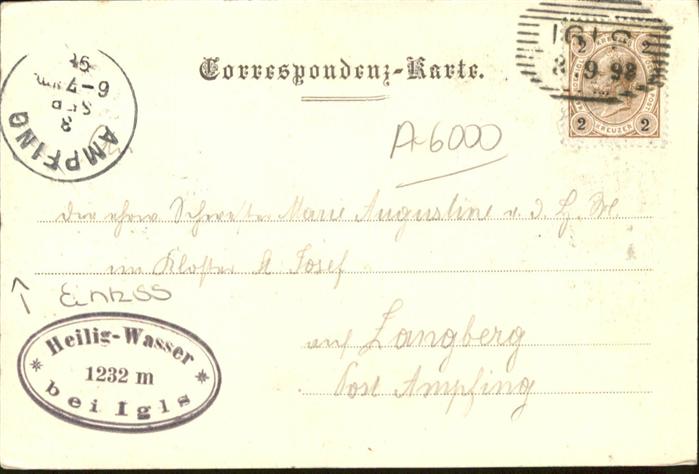 Correspondenz-Karte.
IGLS
8 9 98
2 KREUZER 2
AMPFING
SEP
6-7
98
A-6000
Der ehrw Schwester Marie Augustine v. d. H. M.
im Kloster St Josef
auf Langberg
Post Ampfing
Heilig-Wasser
1232 m
bei Igls